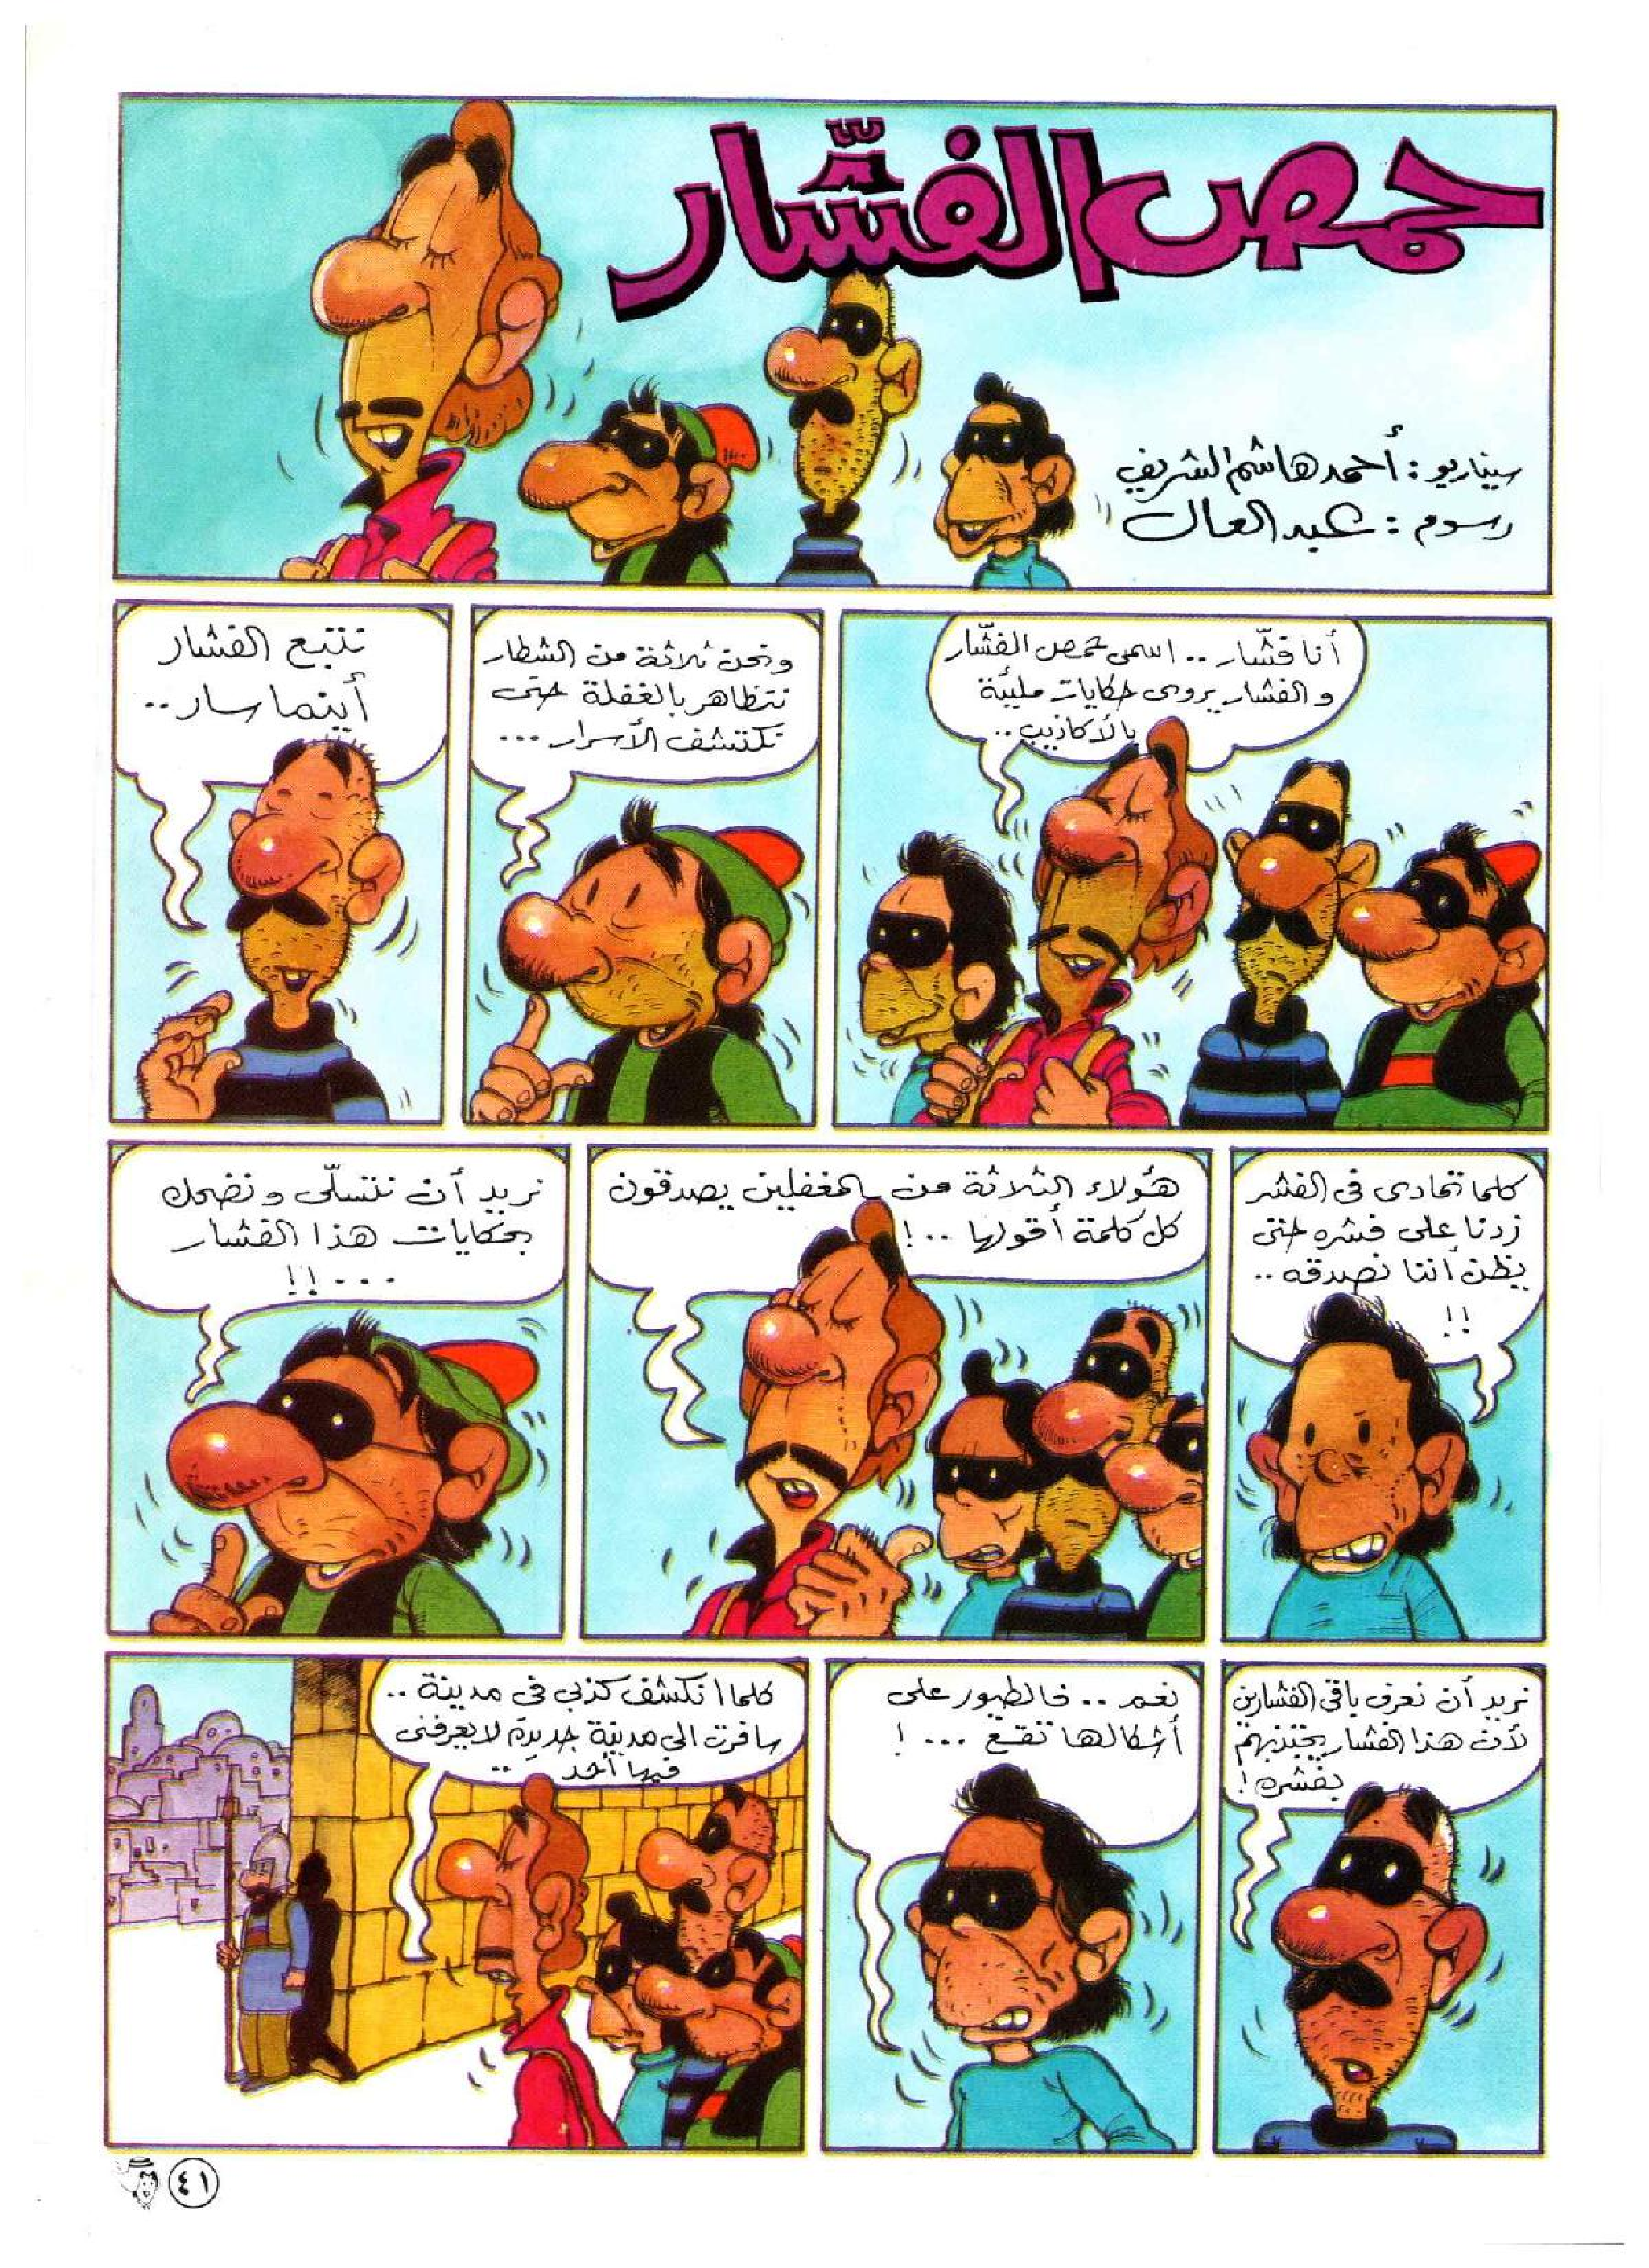 حمص الفشّار
سيناريو : أحمد هاشم الشريف
رسوم : عبد العال
أنا فشّار .. اسمى حمص الفشّار
و الفشار يروى حكايات مليئة
بالأكاذيب ..
ونحن ثلاثة من الشطار
نتظاهر بالغفلة حتى
نكتشف الأسرار ...
نتتبع الفشار
أينما سار ..
كلما تمادى فى الفشر
زدنا على فشره حتى
يظن أننا نصدقه ..
!!
هؤلاء الثلاثة من المغفلين يصدقون
كل كلمة أقولها ..!
نريد أن نتسلّى ونضحك
بحكايات هذا الفشار
...!!
نريد أن نعرف باقى الفشارين
لأن هذا الفشار يجتذبهم
بفشره !
نعم .. فالطيور على
أشكالها تقع ... !
كلما انكشف كذبى فى مدينة ..
سافرت الى مدينة جديدة لا يعرفنى
فيها أحد ..
٤١